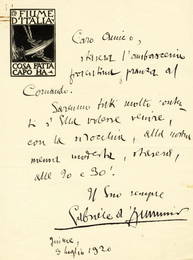 FIUME
D'ITALIA
COSA FATTA
CAPO HA
Caro Amico,
stasera l'ambasceria
fiorentina pranza al
Comando.
Saremo tutti molto contenti
s'Ella volesse venire,
con la sirocchia, alla nostra
mensa modesta, stasera,
alle 20 e 30'.
Il Suo sempre
Gabriele d'Annunzio
Fiume,
3 luglio 1920